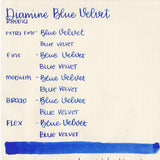 Diamine Blue Velvet
Rhodia
extra fine - Blue Velvet
Blue Velvet
Fine - Blue Velvet
Blue Velvet
Medium - Blue Velvet
Blue Velvet
Broad - Blue Velvet
Blue Velvet
Flex - Blue Velvet
Blue Velvet